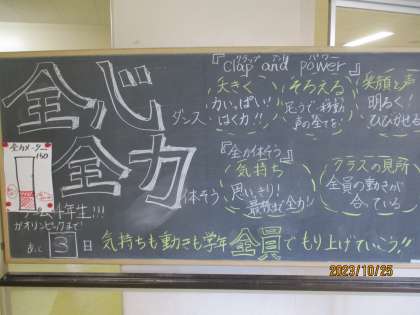 全心
全力
全力メーター
150
4年生!!!
がオリンピックまで!
あと 3 日
『clap and power』
クラップ アンド パワー
ダンス
大きく
力いっぱい!!
はく力!!
そろえる
足うで・移動
声の全てを
笑顔と声
明るく!
ひびかせる
『全力体そう』
体そう
気持ち
思いっきり!
最後まで全力!
クラスの見所
全員の動きが
合っている
気持ちも動きも学年全員でもり上げていこう!!
2023/10/25